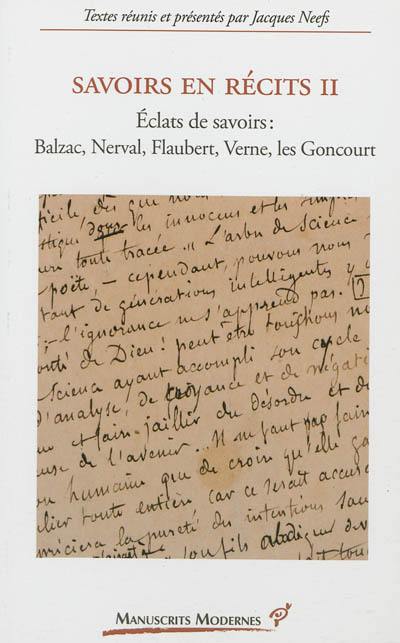 Textes réunis et présentés par Jacques Neefs
SAVOIRS EN RÉCITS II
Éclats de savoirs :
Balzac, Nerval, Flaubert, Verne, les Goncourt
ficile, dès que nous
les innocens et les simples
toute tracée... L'arbre de Science
poëte, — cependant, pouvons nous
tant de générations intelligentes y
— l'ignorance ne s'apprend pas.
de Dieu ! peut être touchons n
Science ayant accompli son cycle
d'analyse, de croyance et de négati
et faire jaillir du désordre et de
use de l'avenir... Il ne faut pas fair
humaine que de croire qu'elle ga
lier toute entière car ce serait accuse
la pureté des intentions sau
fils abdiquer dev
tout
MANUSCRITS MODERNES